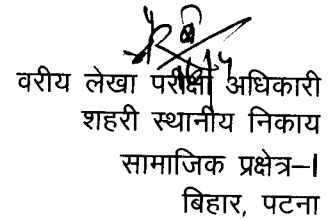 वरीय लेखा परीक्षा अधिकारी
शहरी स्थानीय निकाय
सामाजिक प्रक्षेत्र–I
बिहार, पटना